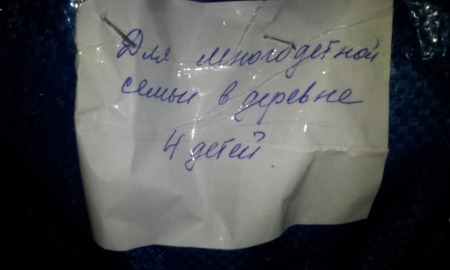 Для многодетной
семьи в деревне
4 детей